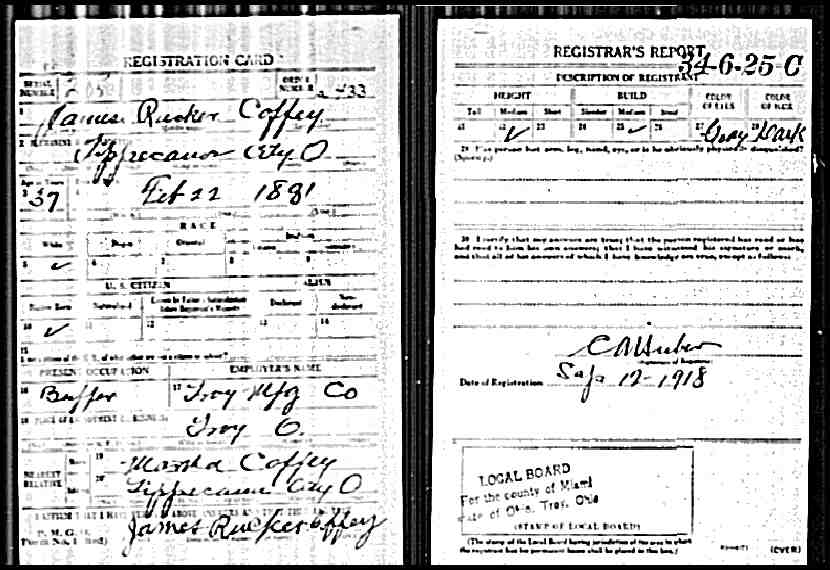 REGISTRATION CARD
SERIAL NUMBER
ORDER NUMBER 433
1 James Rucker Coffey
2 Tippecanoe City O
Age in Years
3 37
Feb 22 1881
RACE
White Negro Oriental Indian
5 ✓ 6 7 8 9
U. S. CITIZEN ALIEN
Native Born Naturalized Declarant Non-declarant
10 ✓ 11 12 13 14
15
PRESENT OCCUPATION EMPLOYER'S NAME
16 Buffer 17 Troy Mfg Co
18 PLACE OF EMPLOYMENT OR BUSINESS
Troy O.
NEAREST RELATIVE
Name 19 Martha Coffey
20 Tippecanoe City O
P. M. G. O.
Form No. 1 (Red)
James Rucker Coffey
REGISTRAR'S REPORT
34-6-25-C
DESCRIPTION OF REGISTRANT
HEIGHT BUILD COLOR OF EYES COLOR OF HAIR
Tall Medium Short Slender Medium Stout
21 22 ✓ 23 24 25 ✓ 26 27 Gray 28 Dark
29 Has person lost arm, leg, hand, eye, or is he obviously physically disqualified?
(Specify.)
30 I certify that my answers are true; that the person registered has read or has
had read to him his own answers; that I have witnessed his signature or mark,
and that all of his answers of which I have knowledge are true, except as follows:
Date of Registration Sep 12-1918
LOCAL BOARD
For the county of Miami
State of Ohio, Troy, Ohio
(STAMP OF LOCAL BOARD)
(The stamp of the Local Board having jurisdiction of the area in which
the registrant has his permanent home shall be placed in this box.)
(OVER)